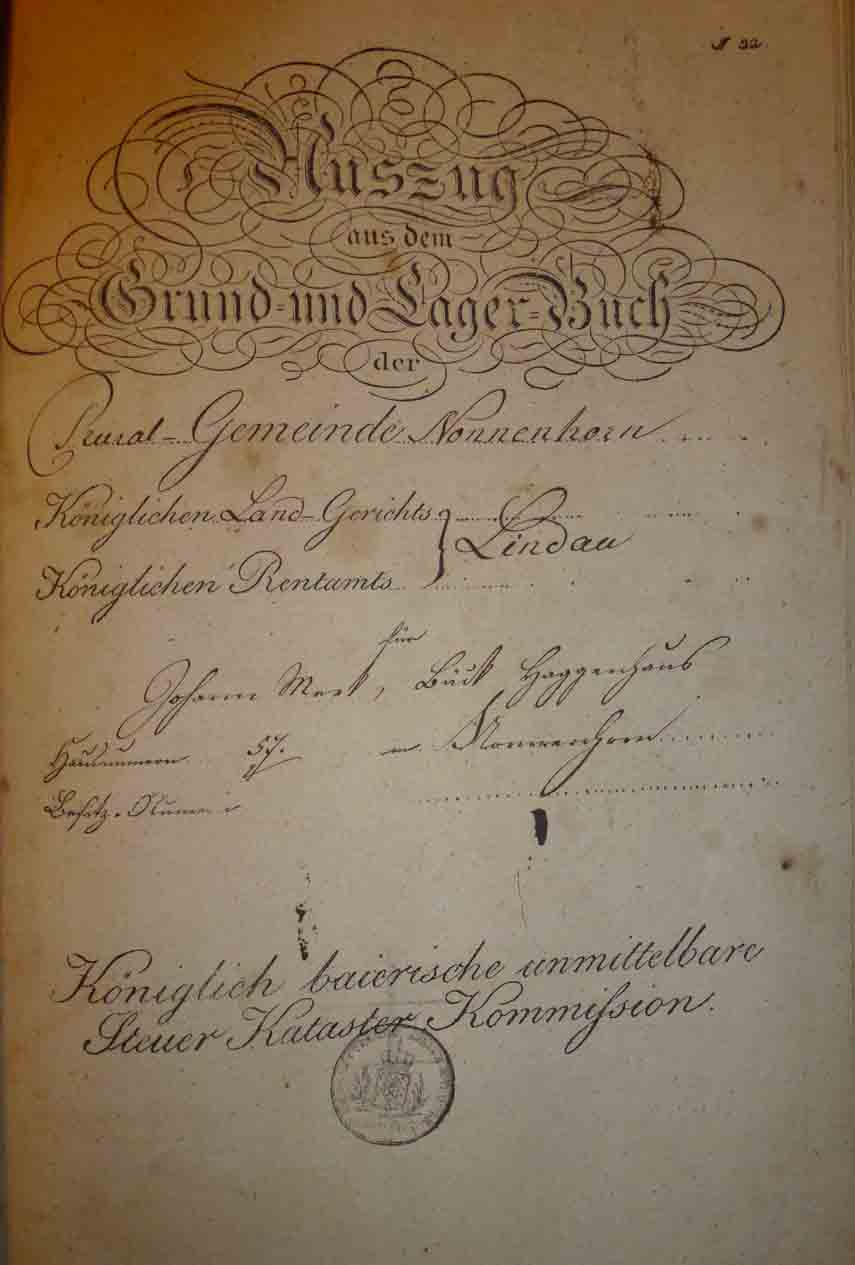 N 32.
Auszug
aus dem
Grund- und Lager-Buch
der
Rural-Gemeinde Nonnenhorn
Königlichen Land-Gerichts
Lindau
Königlichen Rentamts
für
Johann
Hausnummern 57. in Nonnenhorn
Besitz-Numer
Königlich baierische unmittelbare
Steuer Kataster Kommission.